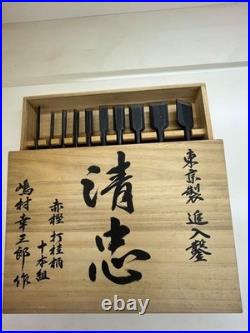 東京製 進入鑿
清忠
赤樫 打柱柄
十本組
嶋村幸三郎作